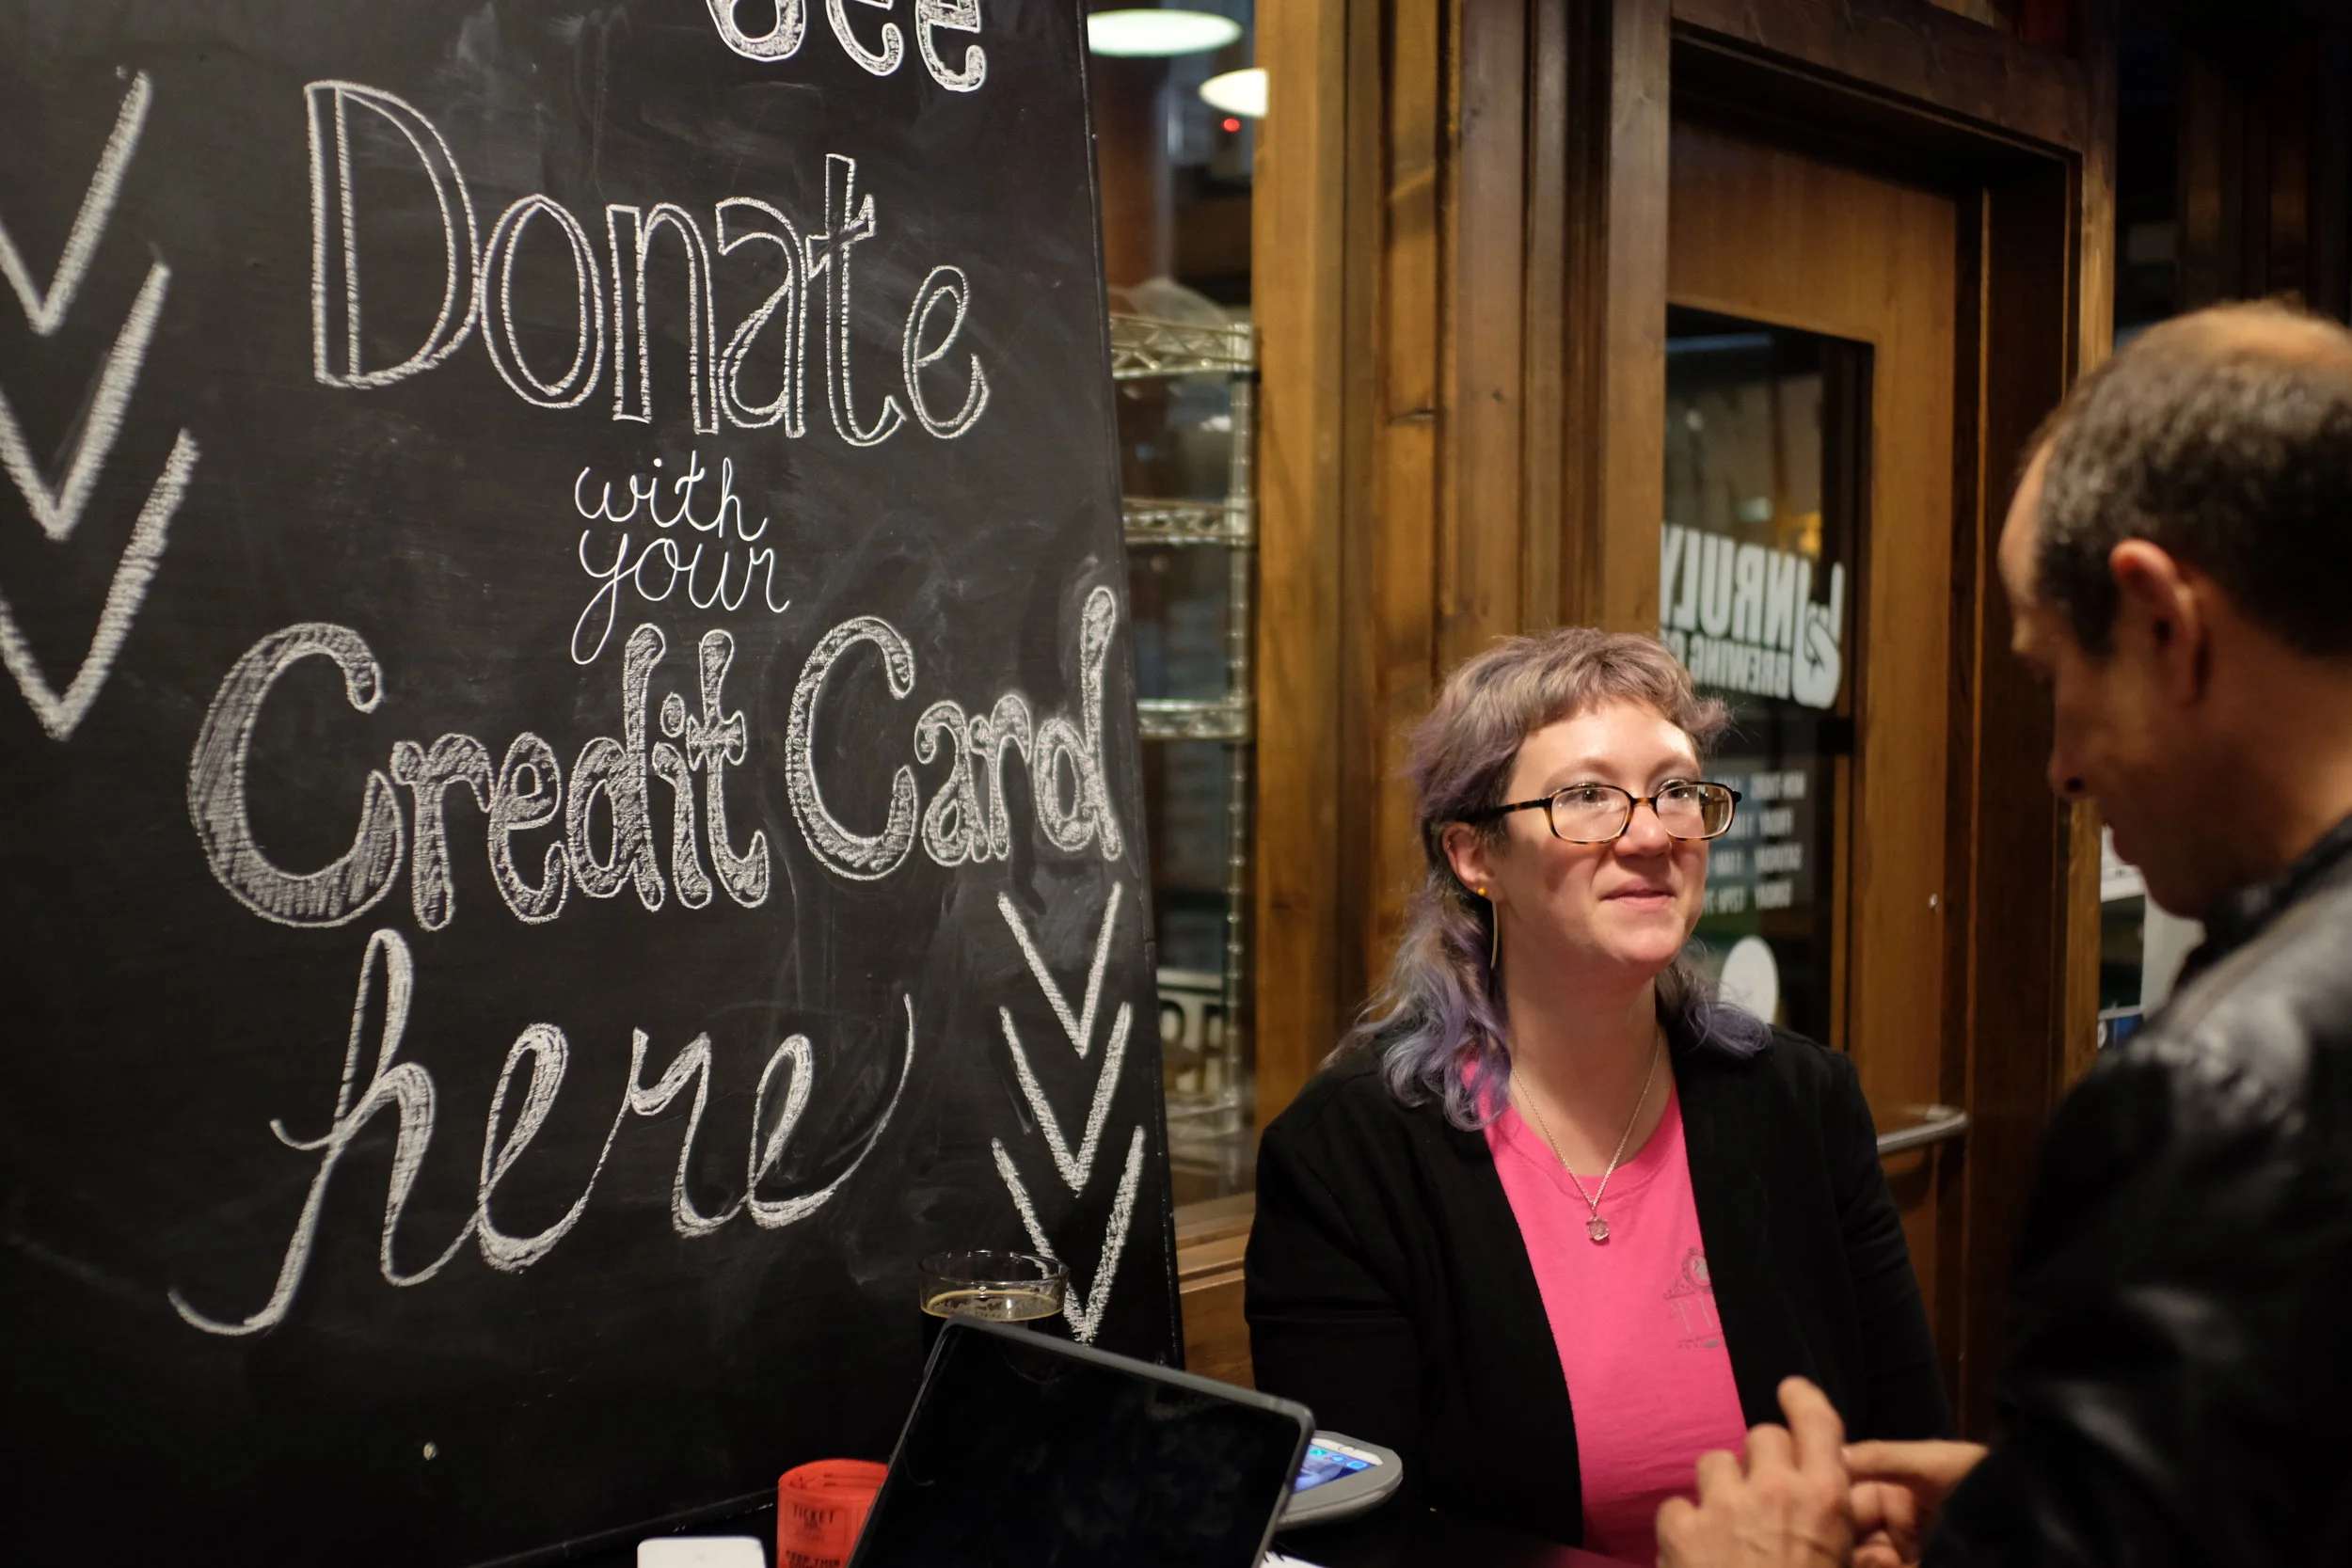 Donate
with
your
Credit Card
here
UNRULY
BREWING CO
TICKET
KEEP THIS